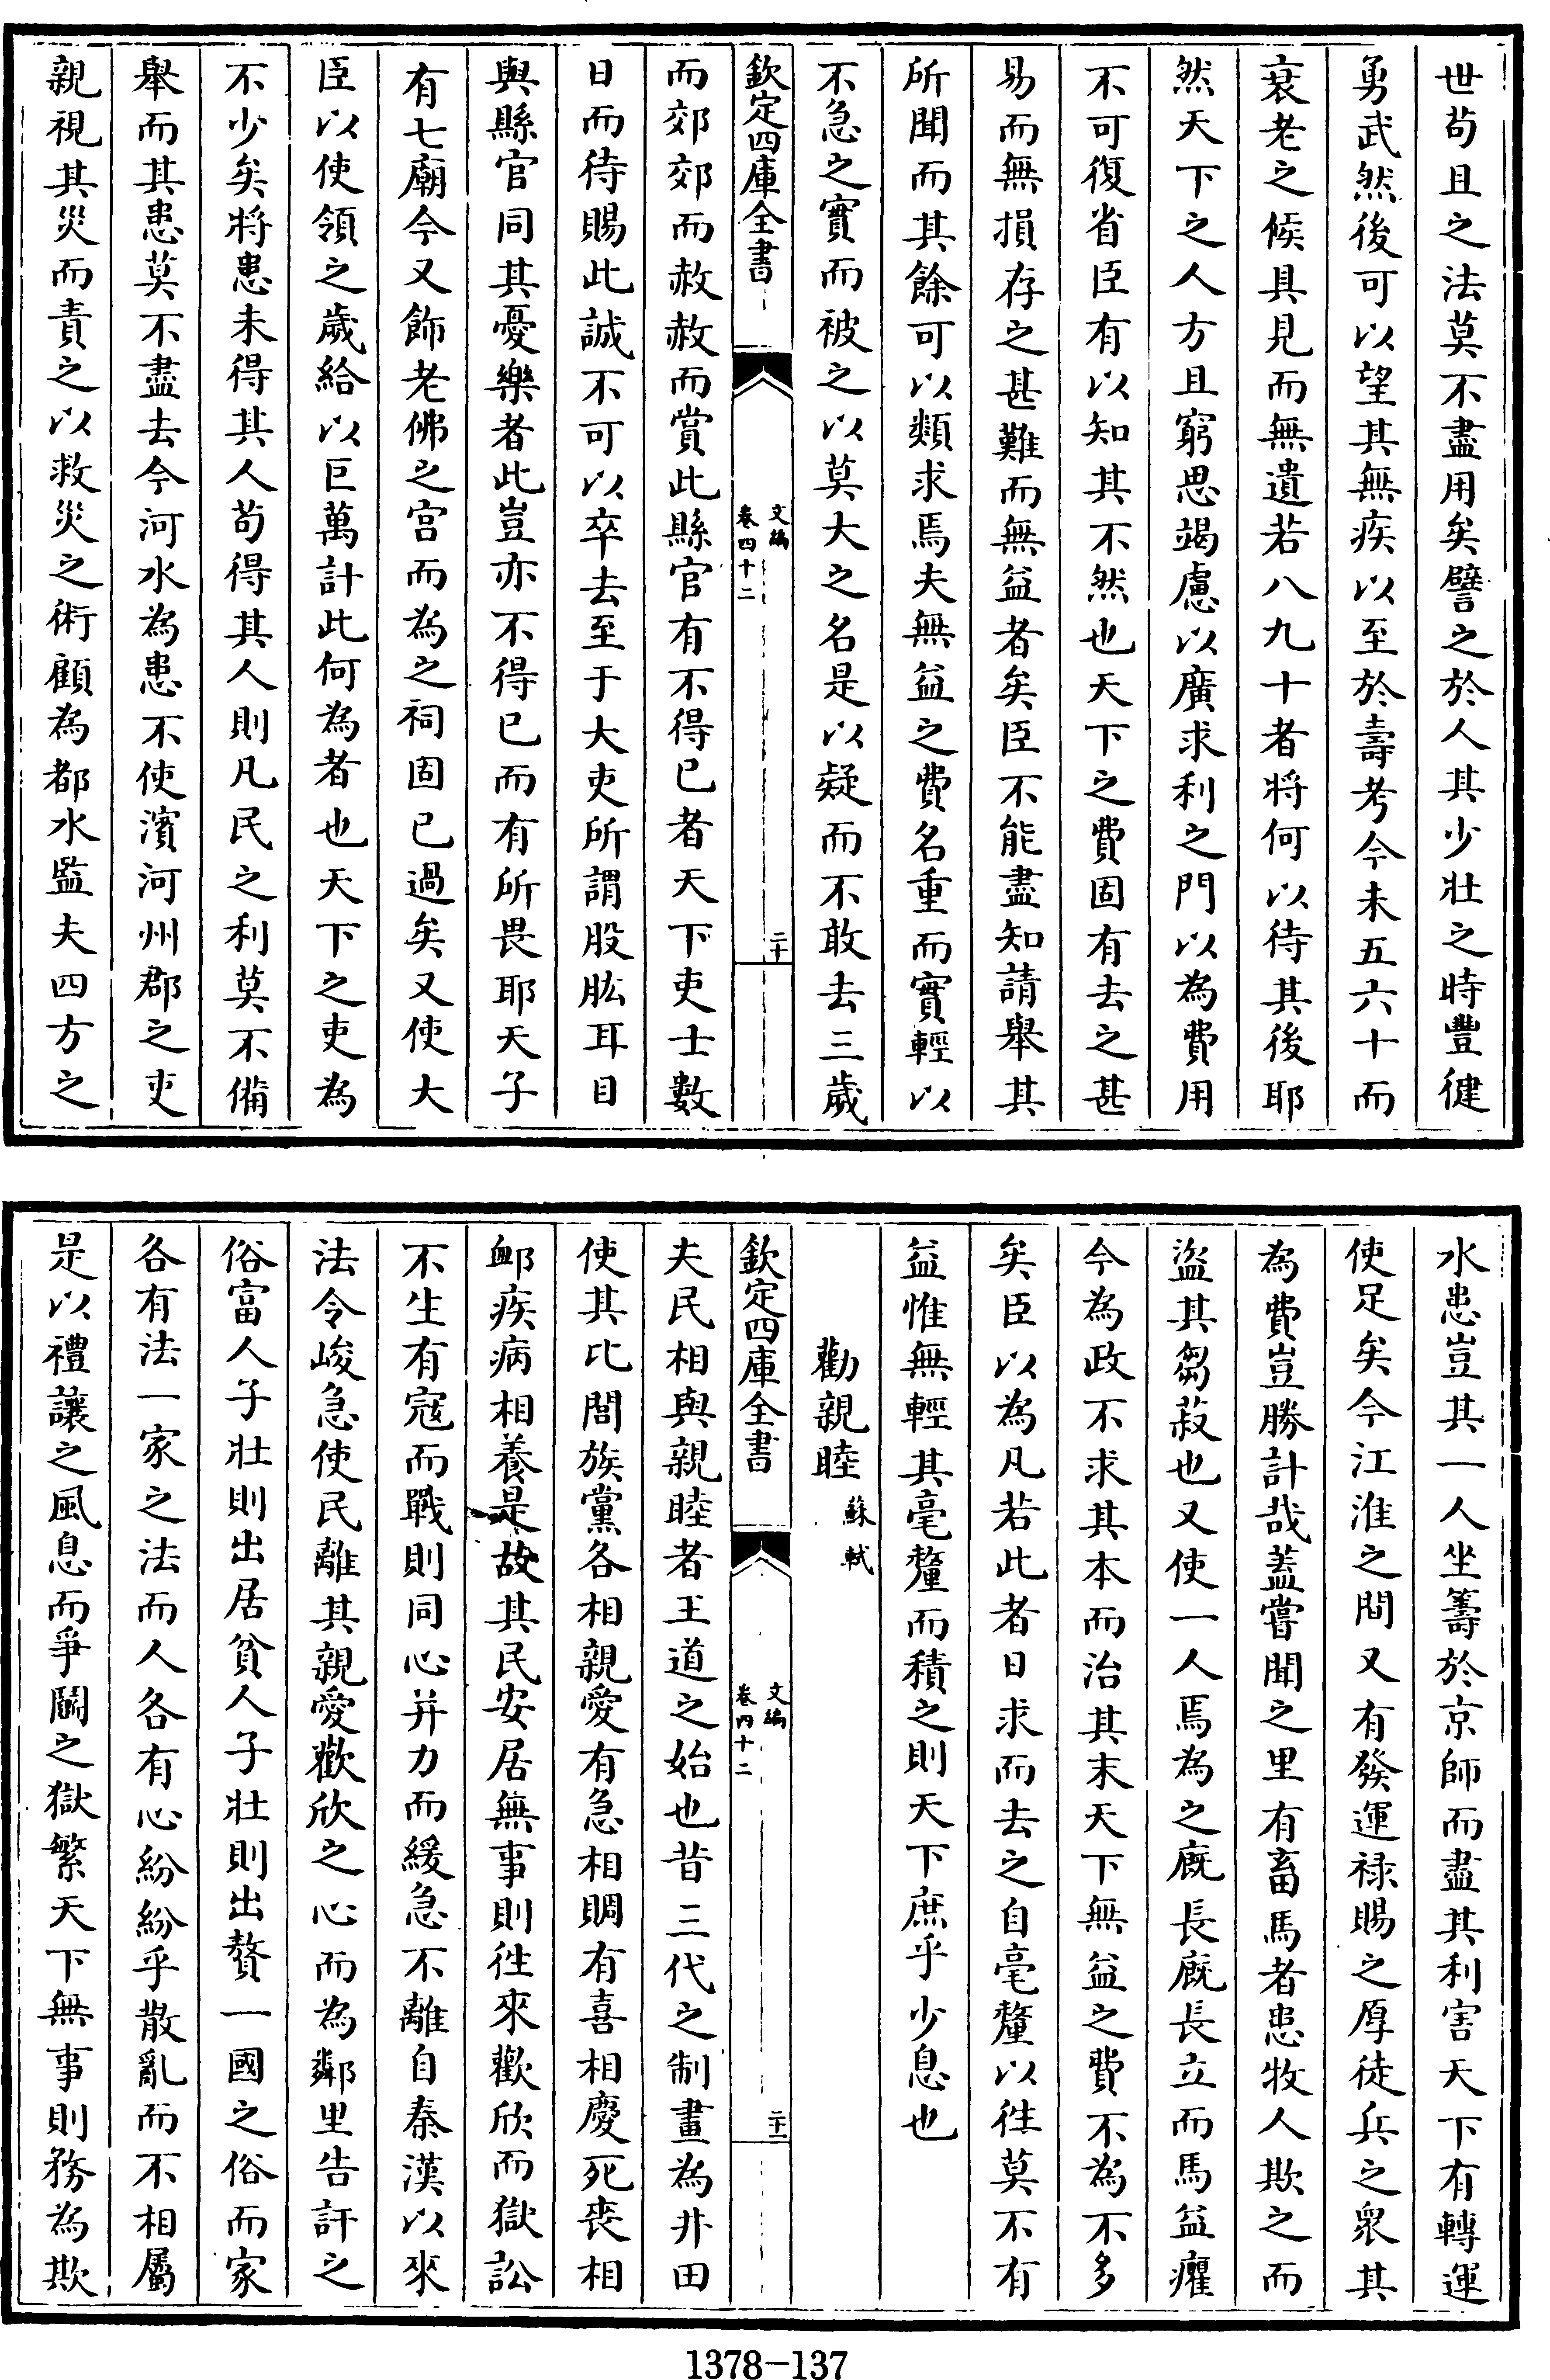 世苟且之法莫不盡用矣譬之於人其少壯之時豐健
勇武然後可以望其無疾以至於壽考今未五六十而
衰老之候具見而無遺若八九十者將何以待其後耶
然天下之人方且窮思竭慮以廣求利之門以為費用
不可復省臣有以知其不然也天下之費固有去之甚
易而無損存之甚難而無益者矣臣不能盡知請舉其
所聞而其餘可以類求焉夫無益之費名重而實輕以
不急之實而被之以莫大之名是以疑而不敢去三歲
欽定四庫全書
文編
卷四十二
二十
而郊郊而赦赦而賞此縣官有不得已者天下吏士數
日而待賜此誠不可以卒去至于大吏所謂股肱耳目
與縣官同其憂樂者此豈亦不得已而有所畏耶天子
有七廟今又飾老佛之宫而為之祠固已過矣又使大
臣以使領之歲給以巨萬計此何為者也天下之吏為
不少矣將患未得其人苟得其人則凡民之利莫不備
舉而其患莫不盡去今河水為患不使濱河州郡之吏
親視其災而責之以救災之術顧為都水監夫四方之
水患豈其一人坐籌於京師而盡其利害天下有轉運
使足矣今江淮之間又有發運禄賜之厚徒兵之衆其
為費豈勝計哉蓋嘗聞之里有畜馬者患牧人欺之而
盜其芻菽也又使一人焉為之廐長廐長立而馬益癯
今為政不求其本而治其末天下無益之費不為不多
矣臣以為凡若此者日求而去之自毫釐以徃莫不有
益惟無輕其毫釐而積之則天下庶乎少息也
勸親睦蘇軾
欽定四庫全書
文編
卷四十二
二十一
夫民相與親睦者王道之始也昔三代之制畫為井田
使其比閭族黨各相親愛有急相賙有喜相慶死喪相
䘏疾病相養是故其民安居無事則徃來歡欣而獄訟
不生有寇而戰則同心并力而緩急不離自秦漢以來
法令峻急使民離其親愛歡欣之心而為鄰里告訐之
俗富人子壯則出居貧人子壯則出贅一國之俗而家
各有法一家之法而人各有心紛紛乎散亂而不相屬
是以禮讓之風息而爭鬬之獄繁天下無事則務為欺
1378-137